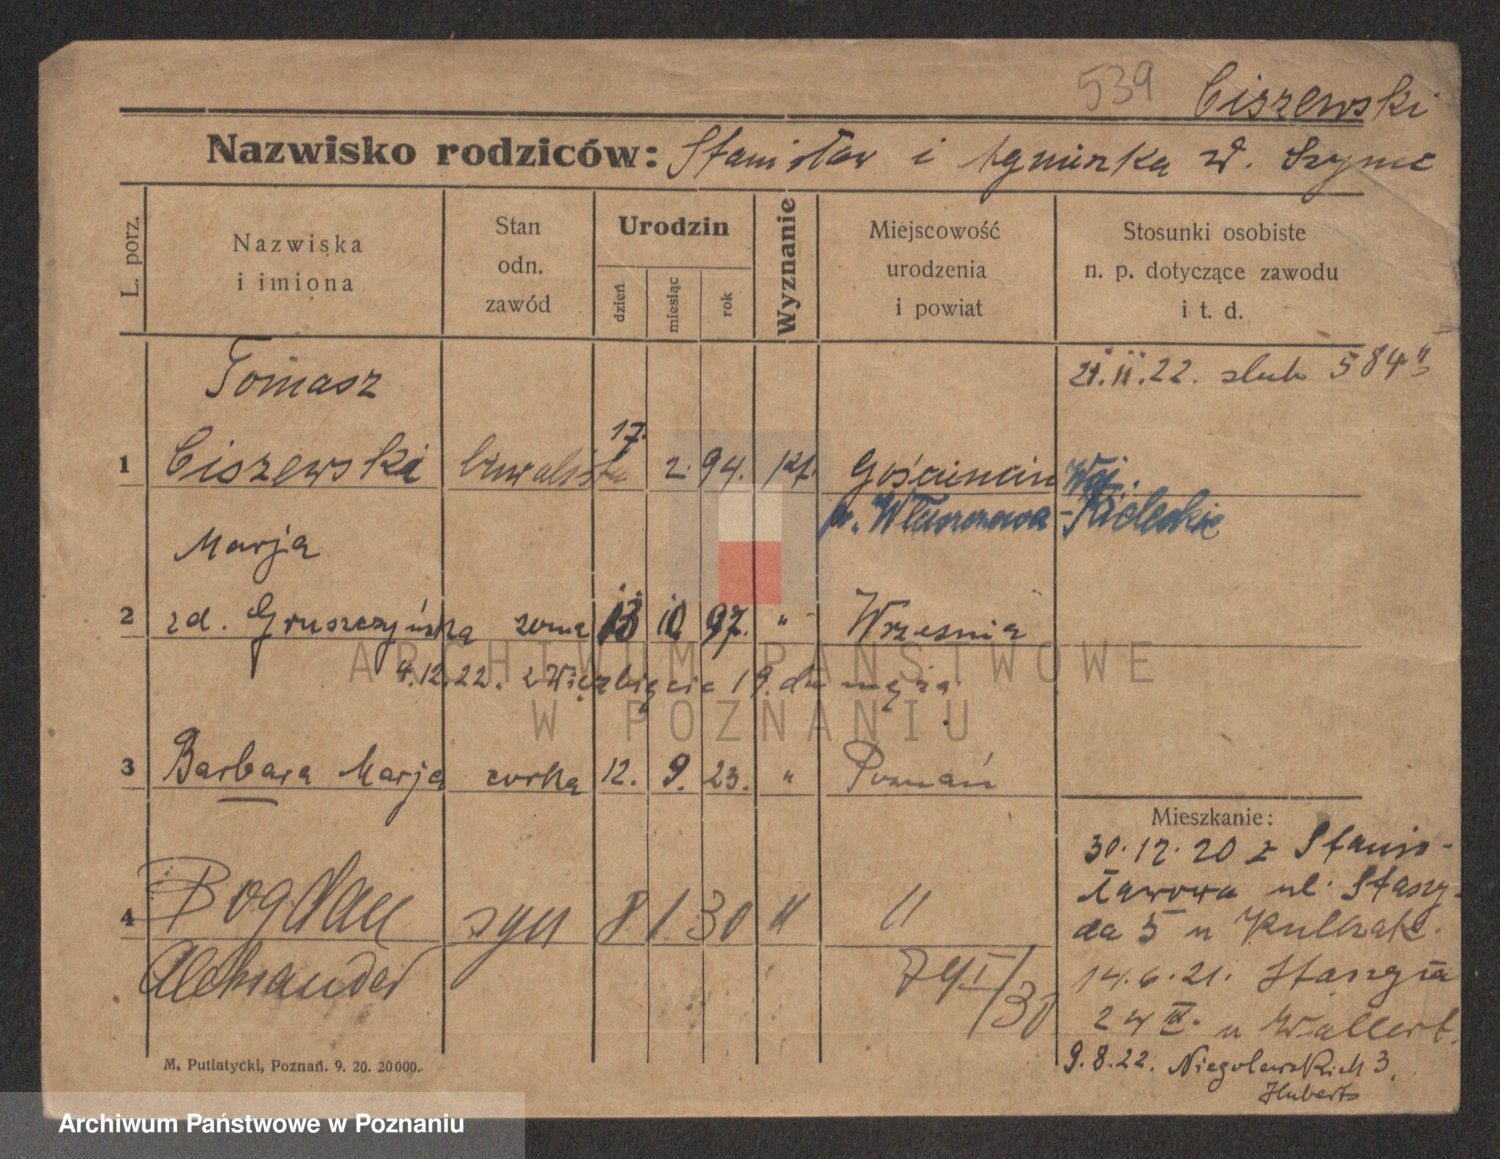 539 Ciszewski
Nazwisko rodziców: Stanisław i Agnieszka zd. Szymc
L. porz.
Nazwiska
i imiona
Stan
odn.
zawód
Urodzin
dzień
miesiąc
rok
Wyznanie
Miejscowość
urodzenia
i powiat
Stosunki osobiste
n. p. dotyczące zawodu
i t. d.
Tomasz
21.II.22. slub 584
1 Ciszewski 17. 2. 94. kt. Gościencin Woj.
p. Włuszczowa - Kieleckie
Marja
2 zd. Gruszczyńska żona 13 10 97. " Wrzesnia
4.12.22. z Wierzbięcic 19. do męża.
3 Barbara Marja corka 12. 9. 23. " Poznań
Mieszkanie:
30.12.20 z Stanis-
ławowa ul. Staszy-
4 Bogdan syn 8 1 30 " "
ca 5 u Kulczak.
Aleksander
79 I/30
14.6.21. Staszyca
24 III. u Wallert.
9.8.22. Niegolewskich 3.
Huberts
M. Putiatycki, Poznań. 9. 20. 20000.
ARCHIWUM PAŃSTWOWE
W POZNANIU
Archiwum Państwowe w Poznaniu